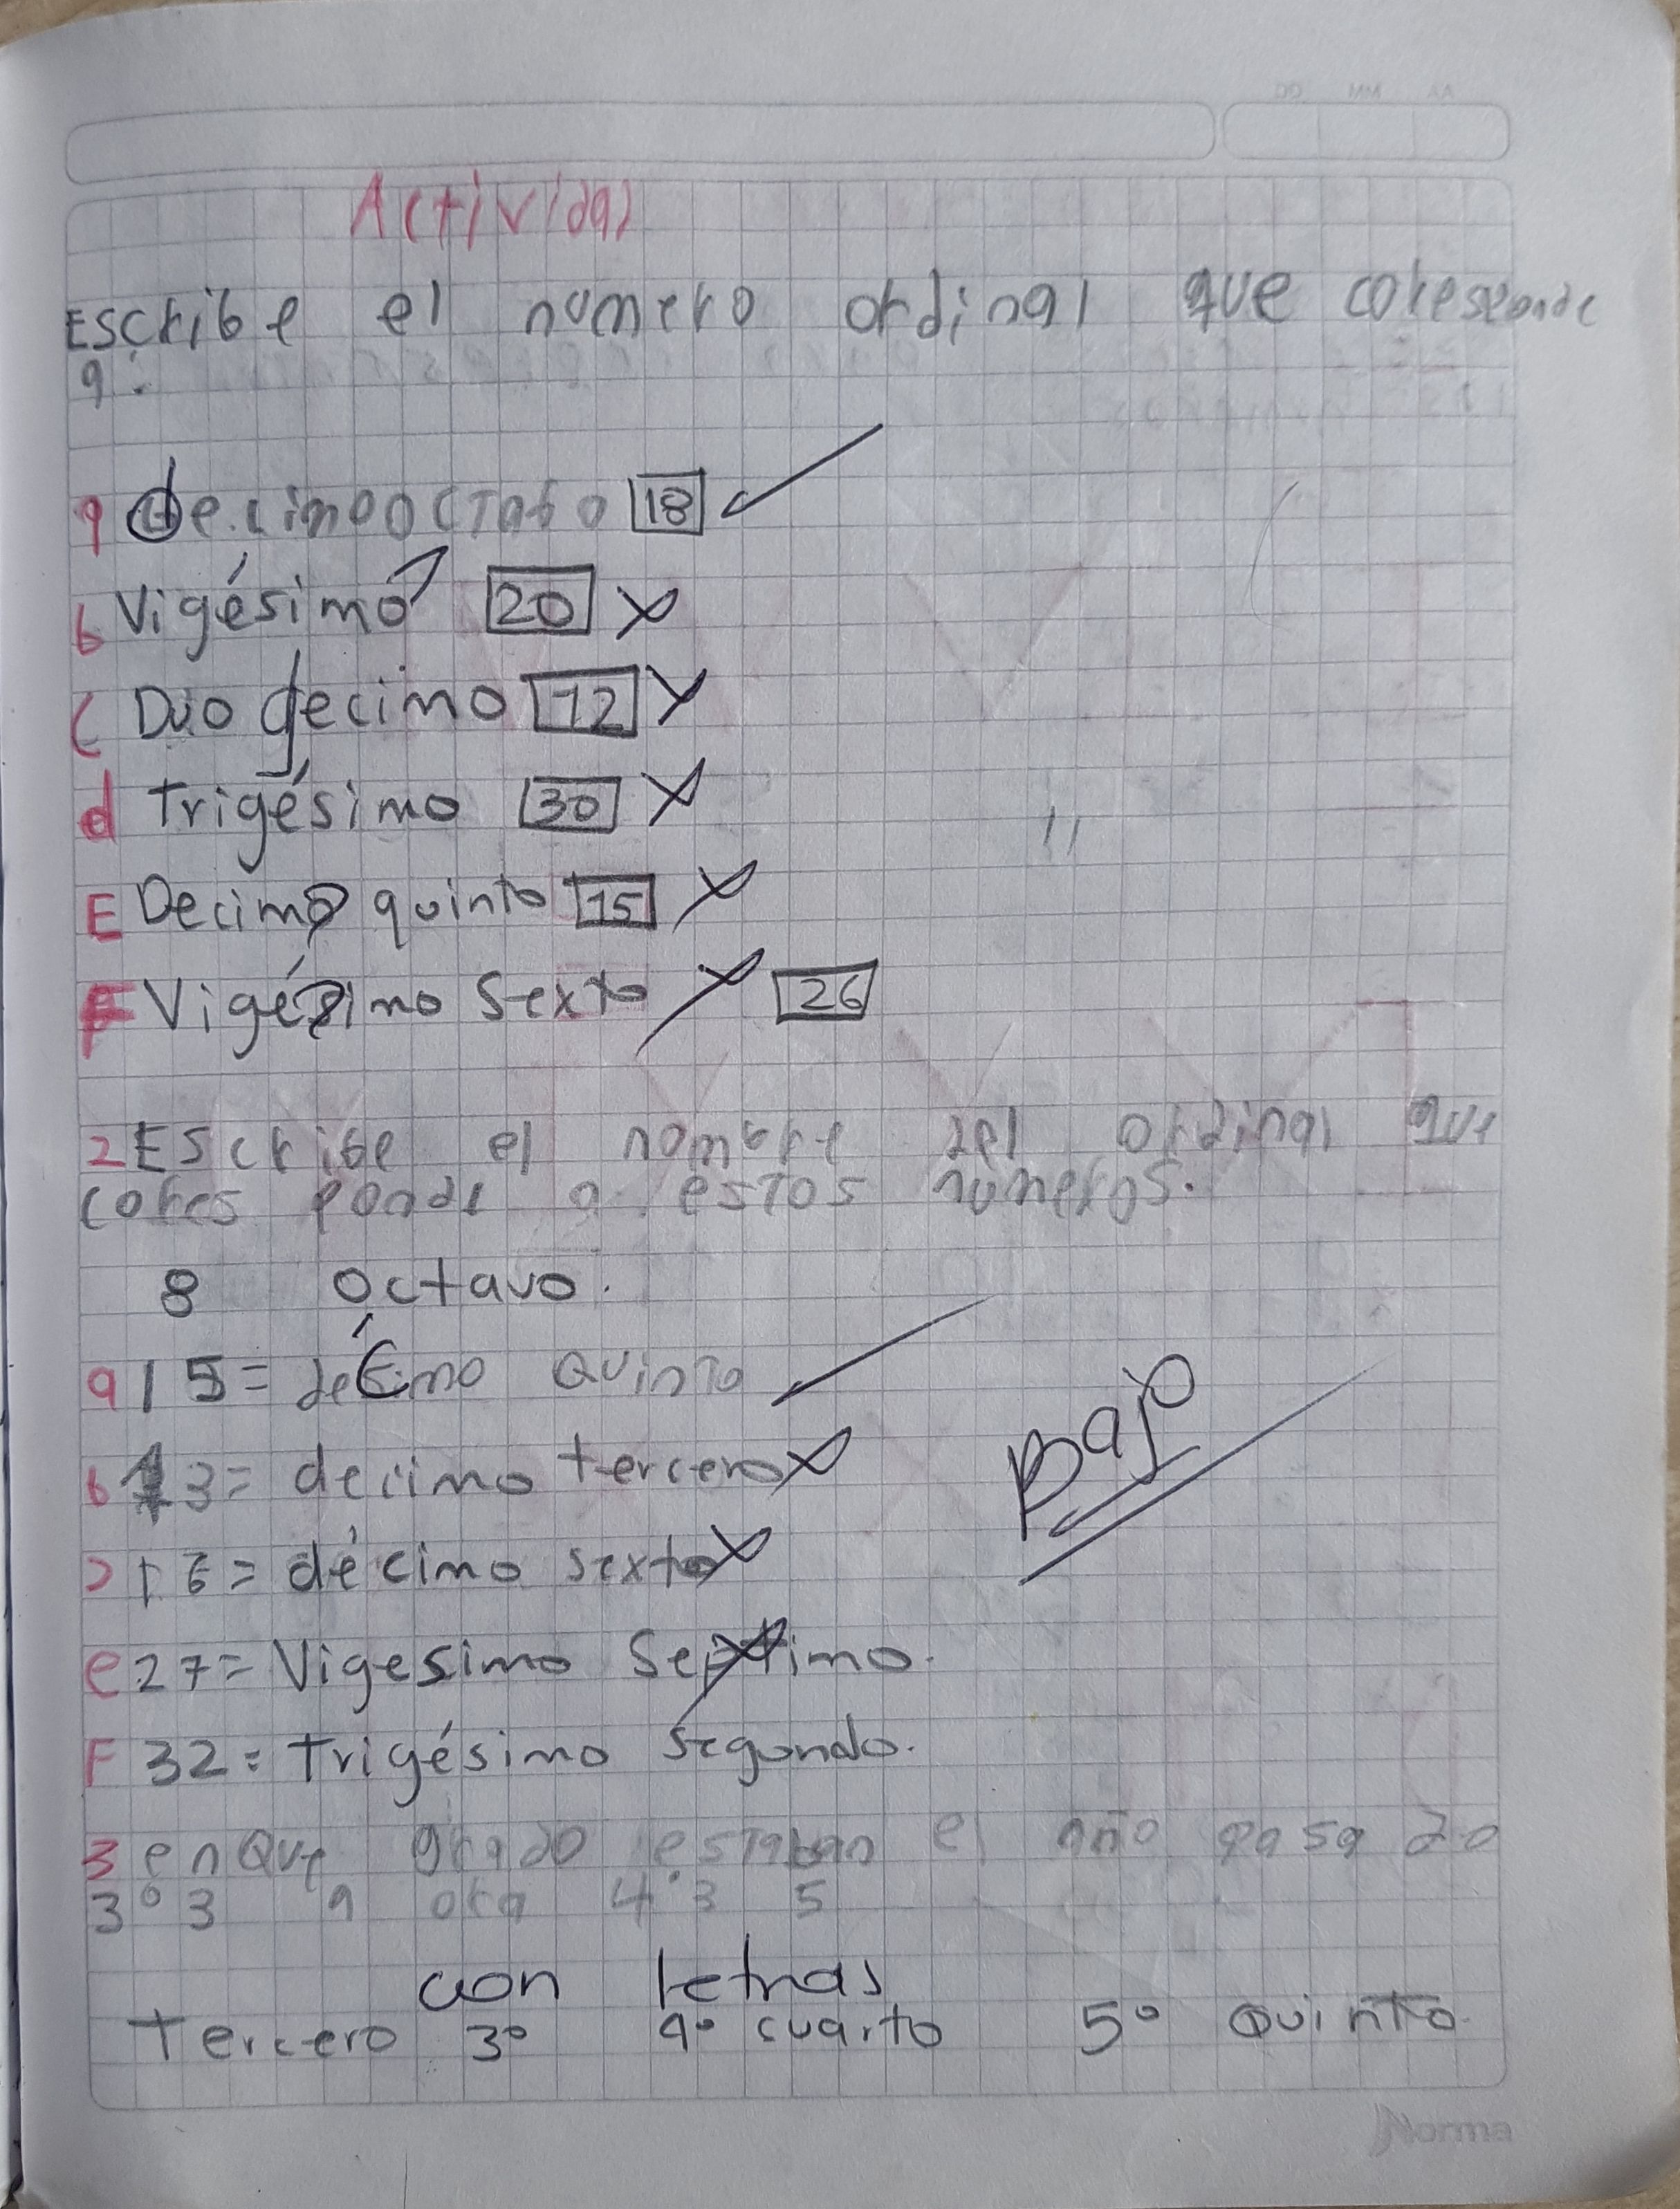 AA MM DD
Actividad
Escribe el numero ordinal que coresponde
a:
a decimooctabo 18
b Vigésimo 20
c Duodecimo 12
d Trigésimo 30
E Decimo quinto 15
F Vigésimo sexto 26
2 Escribe el nombre del ordinal que
cores ponde a estos números.
8 octavo.
a 15= décimo Quinto
b 13= decimo tercero
D 16= décimo sexto
e 27= Vigesimo Septimo.
F 32= Trigésimo segundo.
3 en Que grado estaban el año pasado
3° 3 a ora 4°3 5
con letras
Tercero 3° 4° cuarto 5° Quinto.
Bajo
Norma